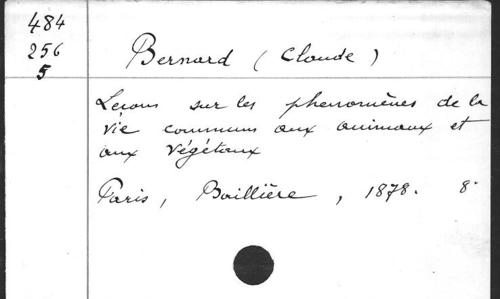 484
256
5
Bernard (Claude)
Leçons sur les phenomènes de la
vie communs aux animaux et
aux végétaux
Paris, Baillière, 1878. 8°